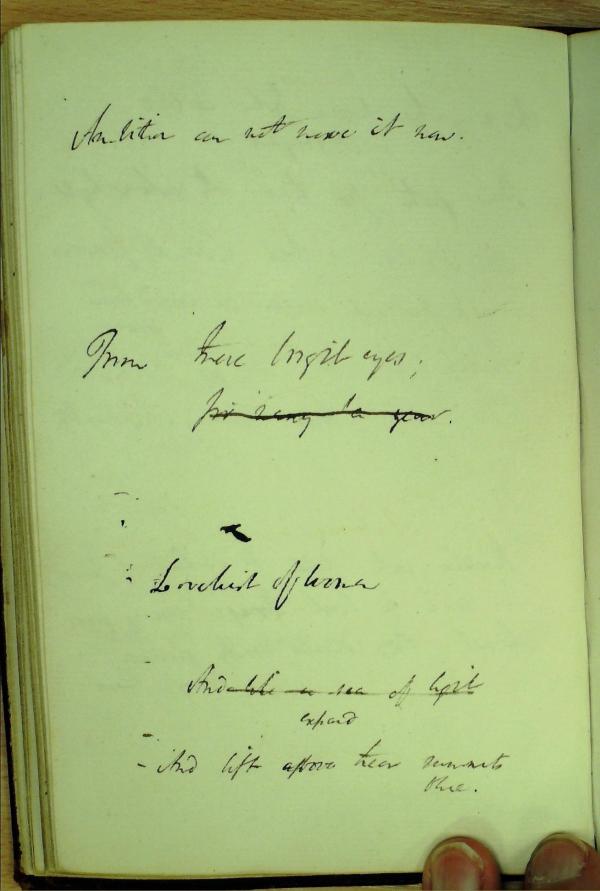 Ambition can not move it now.
From these bright eyes;
for many a year.
Loveliest of women
And like a sea of light
expand
And lift above their summits
thee.